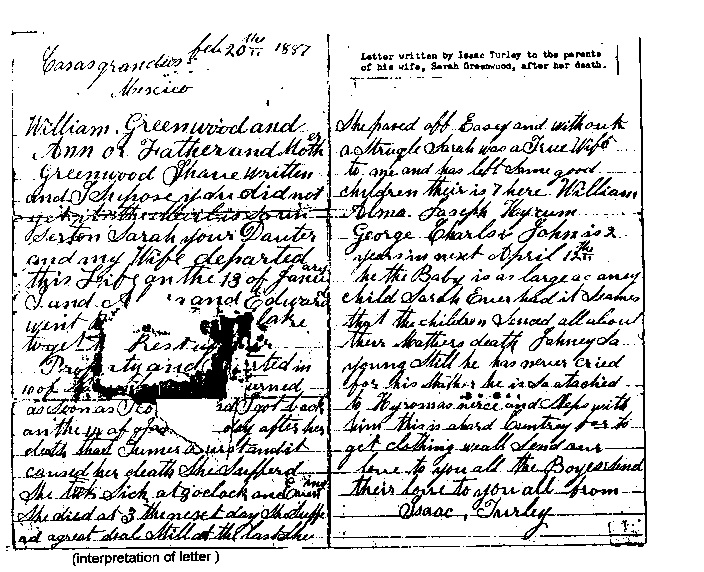 Casasgrandios feb 20th 1887
Mexico
William Greenwood and
Ann or Father and Mother
Greenwood I have written
and I supose you did not
get it
Serton Sarah your Dauter
and my Wife departed
this Life on the 13 of Januery
I and A and Edward
went lake
to get Rest
Property and rted in
10 of turned
as soon as I co I got back
on the 14 of day after her
death that Tumer
caused her death She sufferd
She tuk Sick at 8 oclock and
She died at 3 the next day She Suffe
rd a great deal Still at the last she
Letter written by Isaac Turley to the parents
of his wife, Sarah Greenwood, after her death.
She pased off Easey and without
a strugle Sarah was a True Wife
to me and has left Some good
children their is 7 here William
Alma. Joseph Hyrum
George Charls John is 2
years in next April 12th
he the Baby is as large as aney
child Sarah Ever had it Seames
that the children Senced all about
their Mothers death Johney So
young Still he has never cried
for his Mother he is So atached
to Hyrom as nerce and Sleps with
him this is a hard Cuntrey for to
get clothing weall Send our
love to you all the Boyes Send
their love to you all from
Isaac, Turley
(interpretation of letter )